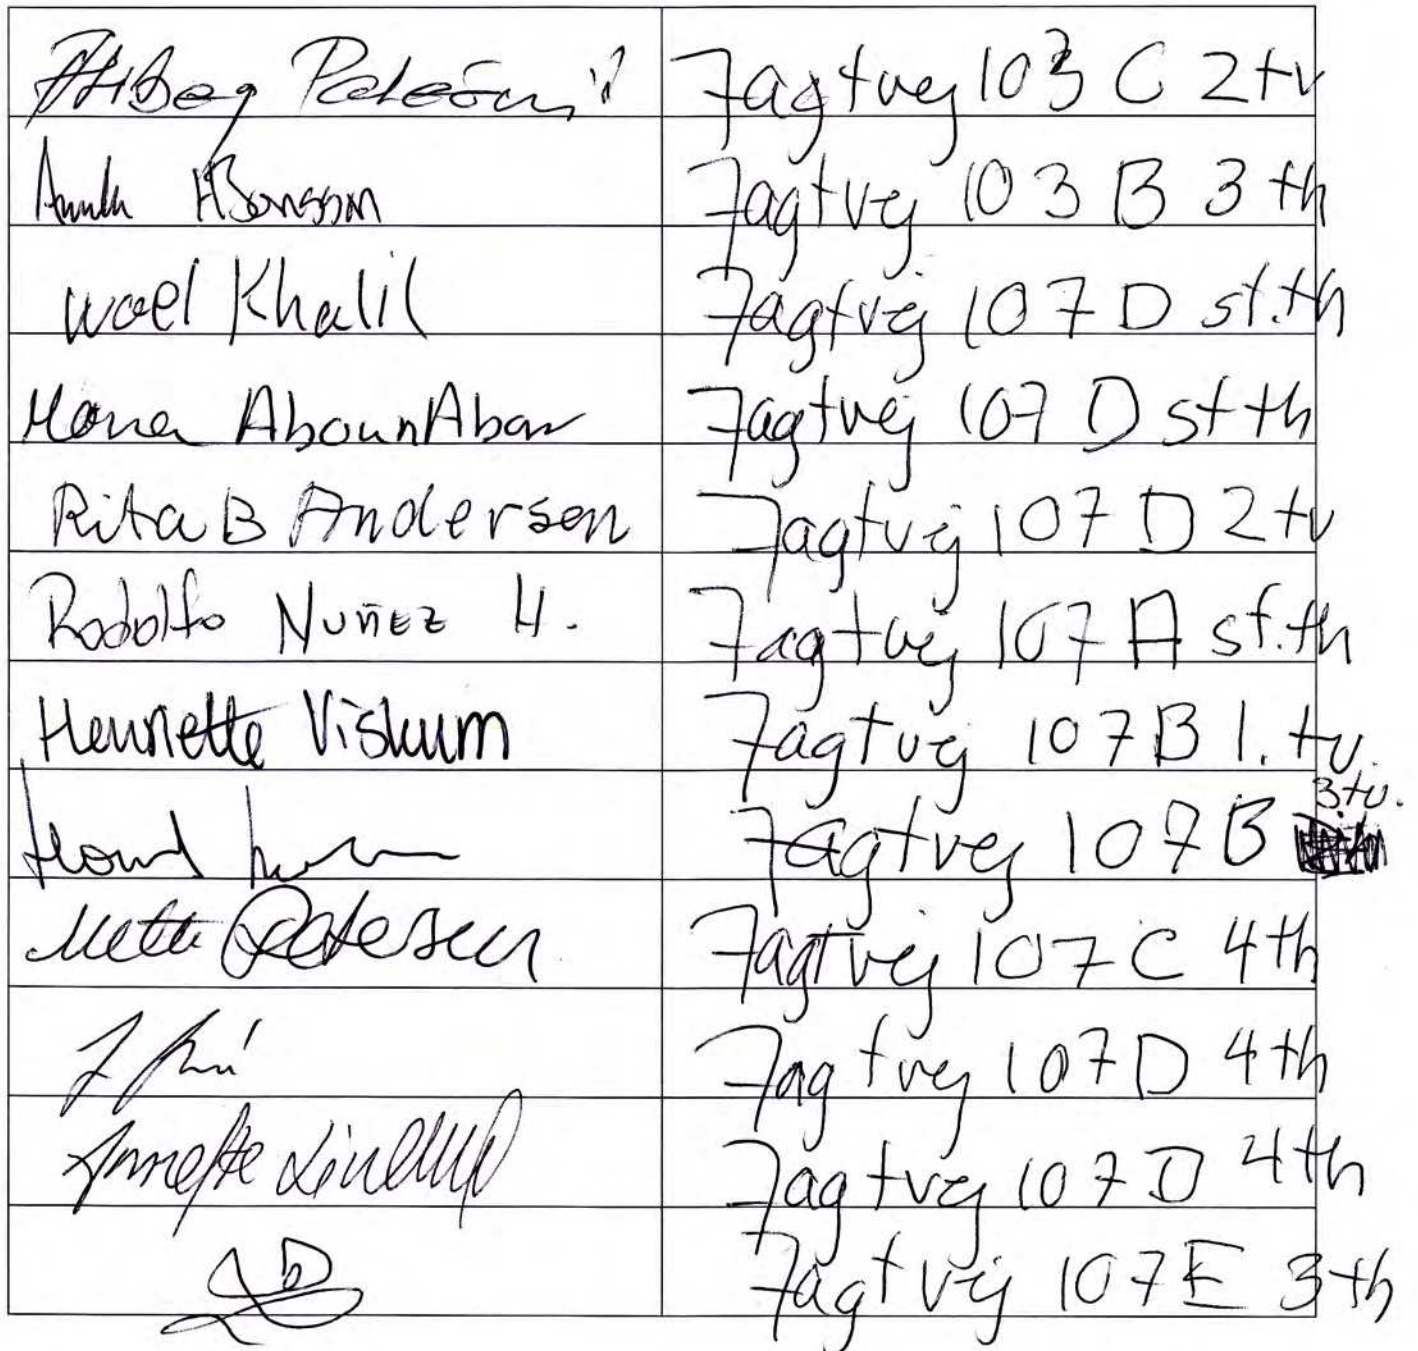 Jagtvej 103 C 2 tv
Jagtvej 103 B 3 th
Wael Khalil Jagtvej 107 D st.th
Mona AbounAbar Jagtvej 107 D st th
Rita B Andersen Jagtvej 107 D 2 tv
Rodolfo NUÑEZ H. Jagtvej 107 A st.th
Henriette Viskum Jagtvej 107 B 1. tv.
Jagtvej 107 B 3 tv.
Mette Petersen Jagtvej 107 C 4 th
Jagtvej 107 D 4 th
Annette Jagtvej 107 D 4 th
Jagtvej 107 E 3 th